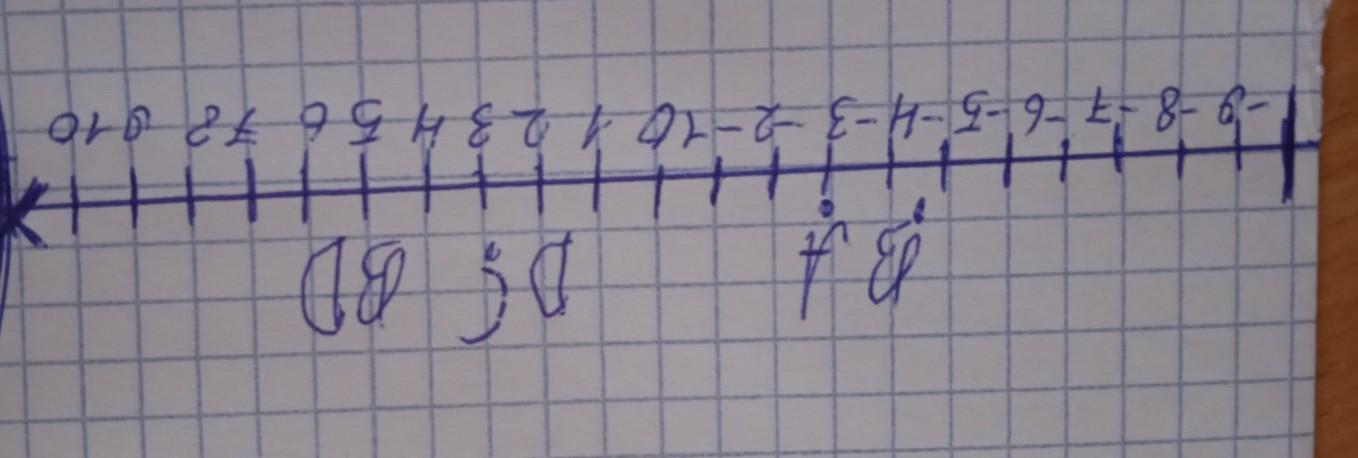 B A D C B D
-9 -8 -7 -6 -5 -4 -3 -2 -1 0 1 2 3 4 5 6 7 8 9 10